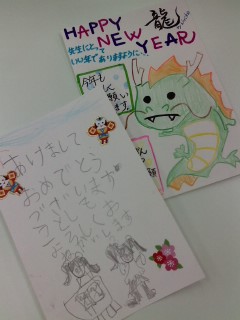 HAPPY
NEW
YEAR
龍
先生にとって
いい年でありますように…
今年も
願い
します。
あけまして
おめでとう
ございます
ことしも
よろしくお
ねがいします